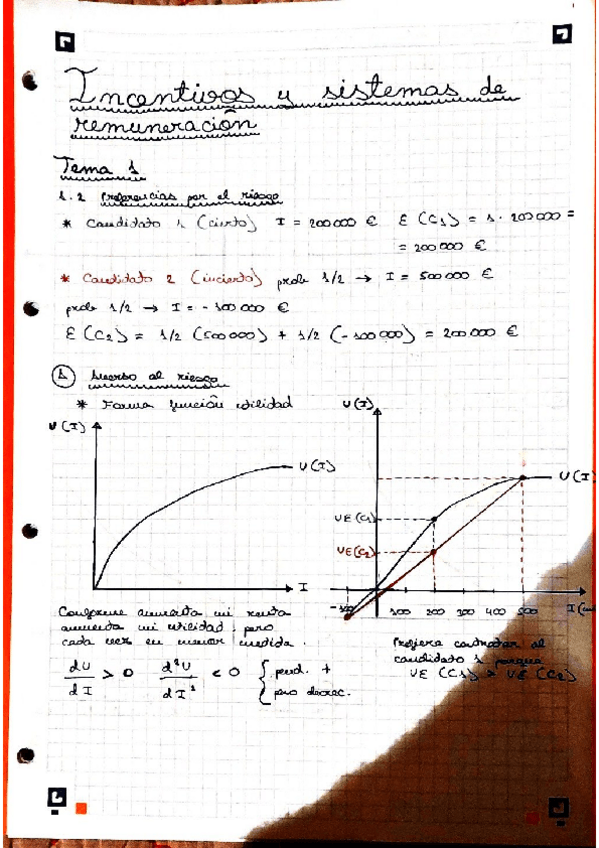 Incentivos y sistemas de
remuneración
Tema 1
1.2 Preferencias por el riesgo
* Candidato 1 (cierto) I = 200000 € E(C1) = 1 · 200000 =
= 200000 €
* Candidato 2 (incierto) prob 1/2 → I = 500000 €
prob 1/2 → I = - 100000 €
E(C2) = 1/2 (500000) + 1/2 (-100000) = 200000 €
① Averso al riesgo
* Forma función utilidad
U(I)
U(I)
I
U(I)
U(I)
UE(C1)
UE(C2)
-100 100 200 300 400 500 I
Conforme aumenta mi renta
aumenta mi utilidad, pero
cada vez en menor medida.
dU/dI > 0 d²U/dI² < 0 { pend. +
pero decrec.
Prefiere contratar al
candidato 1 porque
UE(C1) > UE(C2)